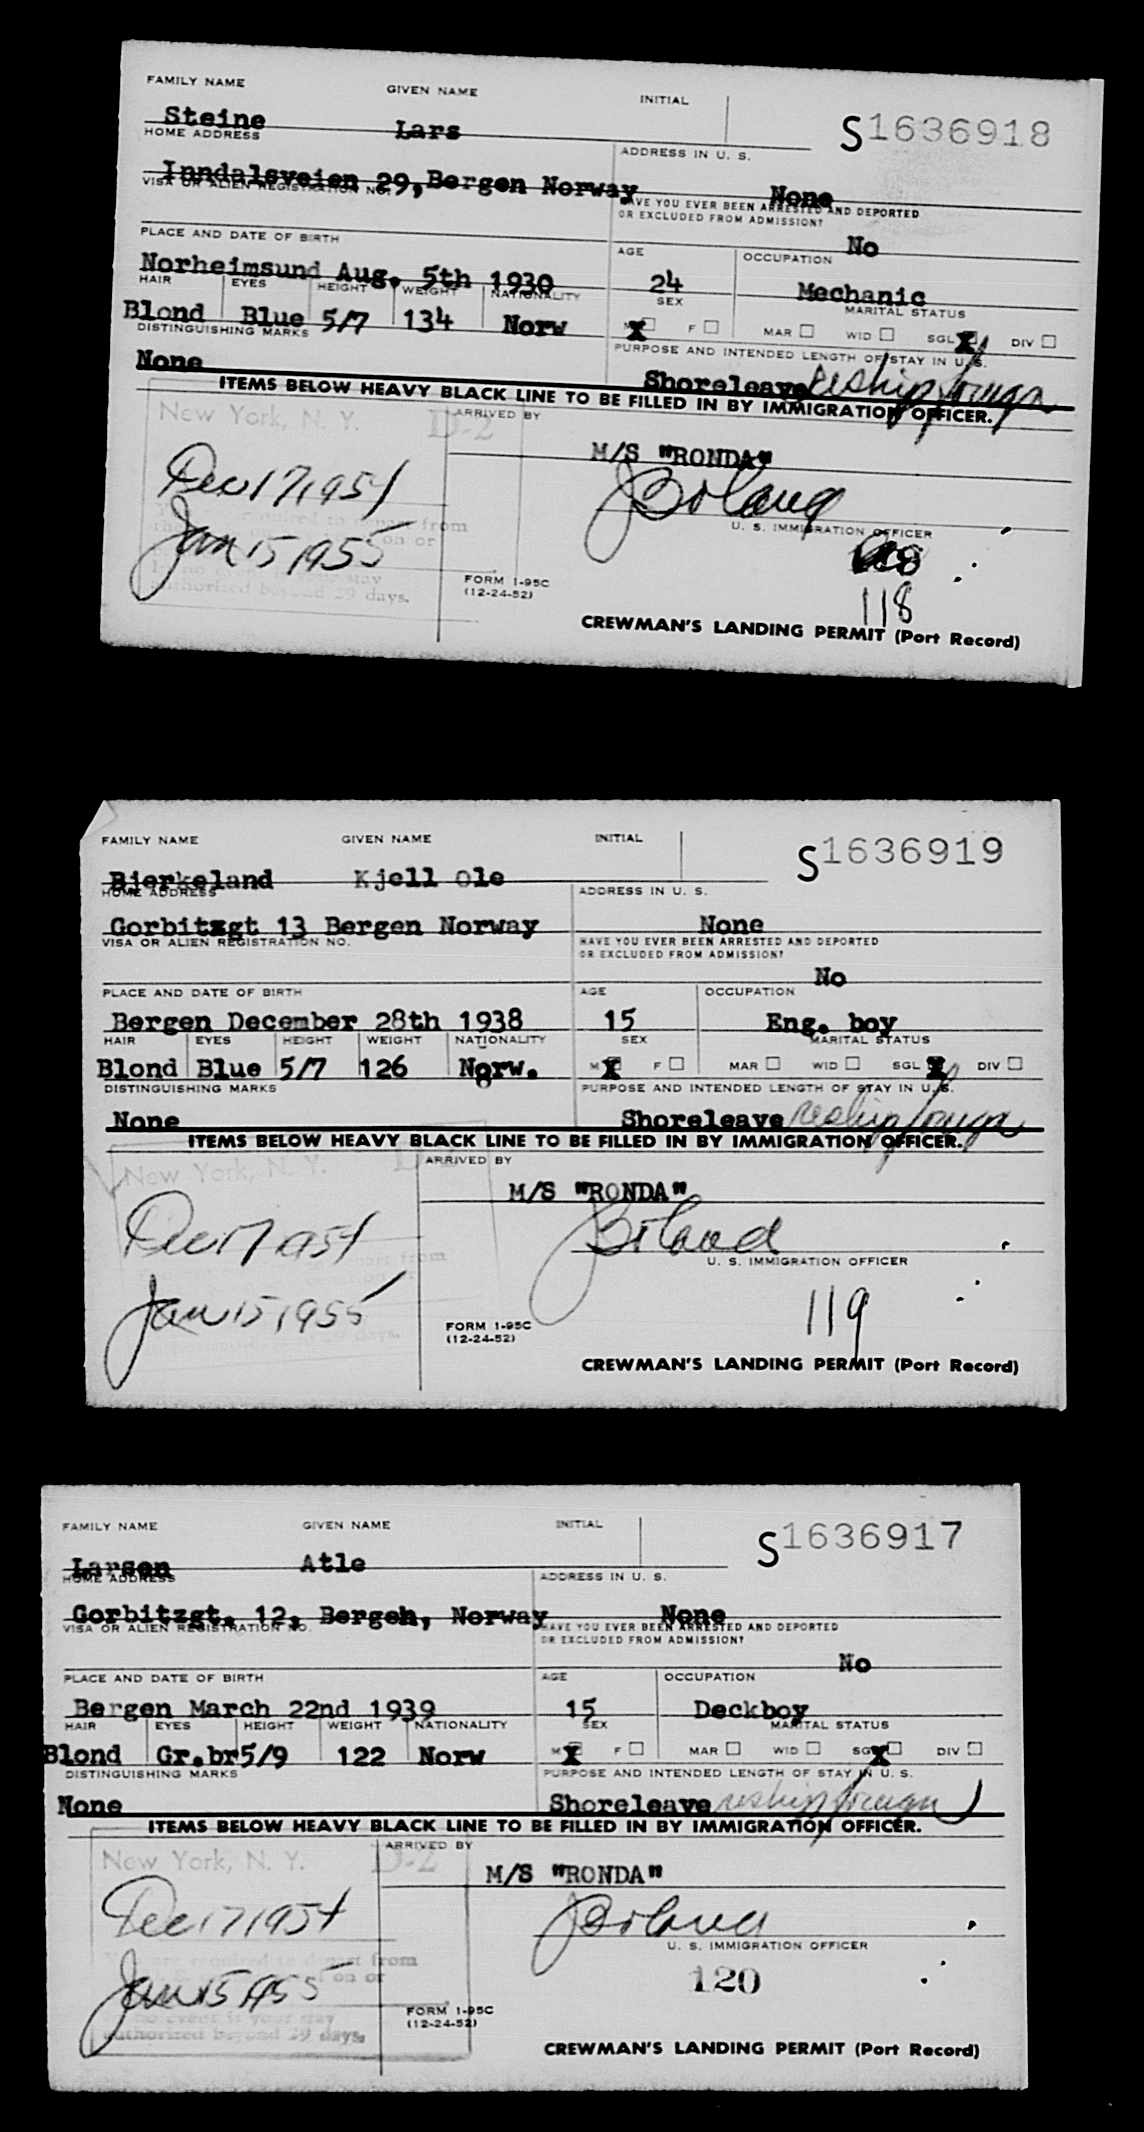 FAMILY NAME GIVEN NAME INITIAL
S1636918
Steine Lars
HOME ADDRESS ADDRESS IN U. S.
Inndalsveien 29, Bergen Norway None
VISA OR ALIEN REGISTRATION NO. HAVE YOU EVER BEEN ARRESTED AND DEPORTED
OR EXCLUDED FROM ADMISSION?
No
PLACE AND DATE OF BIRTH AGE OCCUPATION
Norheimsund Aug. 5th 1930 24 Mechanic
HAIR EYES HEIGHT WEIGHT NATIONALITY SEX MARITAL STATUS
Blond Blue 5/7 134 Norw M X F MAR WID SGL X DIV
DISTINGUISHING MARKS PURPOSE AND INTENDED LENGTH OF STAY IN U. S.
None Shoreleave reship foreign
ITEMS BELOW HEAVY BLACK LINE TO BE FILLED IN BY IMMIGRATION OFFICER.
New York, N. Y. D-2 ARRIVED BY
M/S "RONDA"
Dec 17 1954 Boland
U. S. IMMIGRATION OFFICER
required to depart from
on or
Jan 15 1955
your stay
authorized beyond 29 days.
118
FORM I-95C
(12-24-52)
CREWMAN'S LANDING PERMIT (Port Record)
FAMILY NAME GIVEN NAME INITIAL
S1636919
Bjerkeland Kjell Ole
HOME ADDRESS ADDRESS IN U. S.
Gorbitzgt 13 Bergen Norway None
VISA OR ALIEN REGISTRATION NO. HAVE YOU EVER BEEN ARRESTED AND DEPORTED
OR EXCLUDED FROM ADMISSION?
No
PLACE AND DATE OF BIRTH AGE OCCUPATION
Bergen December 28th 1938 15 Eng. boy
HAIR EYES HEIGHT WEIGHT NATIONALITY SEX MARITAL STATUS
Blond Blue 5/7 126 Norw. M X F MAR WID SGL X DIV
DISTINGUISHING MARKS PURPOSE AND INTENDED LENGTH OF STAY IN U. S.
None Shoreleave reship foreign
ITEMS BELOW HEAVY BLACK LINE TO BE FILLED IN BY IMMIGRATION OFFICER.
New York, N. Y. ARRIVED BY
M/S "RONDA"
Dec 17 1954 Boland
U. S. IMMIGRATION OFFICER
from
Jan 15 1955 119
days.
FORM I-95C
(12-24-52)
CREWMAN'S LANDING PERMIT (Port Record)
FAMILY NAME GIVEN NAME INITIAL
S1636917
Larsen Atle
HOME ADDRESS ADDRESS IN U. S.
Gorbitzgt. 12, Bergen, Norway None
VISA OR ALIEN REGISTRATION NO. HAVE YOU EVER BEEN ARRESTED AND DEPORTED
OR EXCLUDED FROM ADMISSION?
No
PLACE AND DATE OF BIRTH AGE OCCUPATION
Bergen March 22nd 1939 15 Deckboy
HAIR EYES HEIGHT WEIGHT NATIONALITY SEX MARITAL STATUS
Blond Gr.br 5/9 122 Norw M X F MAR WID SGL X DIV
DISTINGUISHING MARKS PURPOSE AND INTENDED LENGTH OF STAY IN U. S.
None Shoreleave reship foreign
ITEMS BELOW HEAVY BLACK LINE TO BE FILLED IN BY IMMIGRATION OFFICER.
New York, N. Y. D-2 ARRIVED BY
M/S "RONDA"
Dec 17 1954 Boland
U. S. IMMIGRATION OFFICER
are required to depart from
on or
Jan 15 1955 120
no event is your stay
authorized beyond 29 days.
FORM I-95C
(12-24-52)
CREWMAN'S LANDING PERMIT (Port Record)